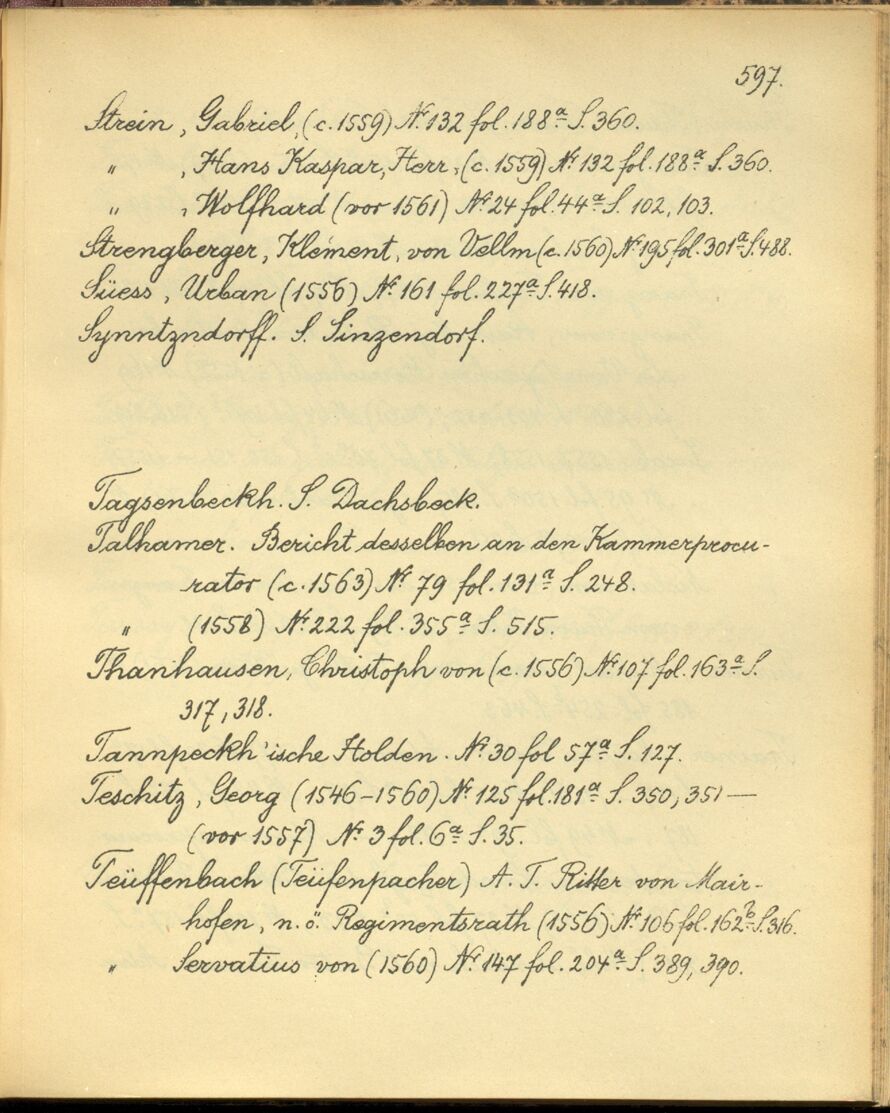 597.
Strein, Gabriel, (c. 1559) Nº 132 fol. 188ª S. 360.
" , Hans Kaspar, Herr, (c. 1559) Nº 132 fol. 188ª S. 360.
" , Wolfhard (vor 1561) Nº 24 fol. 44ª S. 102, 103.
Strengberger, Klement, von Vellm (c. 1560) Nº 195 fol. 301ª S. 488.
Süess, Urban (1556) Nº 161 fol. 227ª S. 418.
Synntzndorff. S. Sinzendorf.
Tagsenbeckh. S. Dachsbeck.
Talhamer. Bericht desselben an den Kammerprocu-
rator (c. 1563) Nº 79 fol. 131ª S. 248.
" (1558) Nº 222 fol. 355ª S. 515.
Thanhausen, Christoph von (c. 1556) Nº 107 fol. 163ª S.
317, 318.
Tannpeckh'ische Holden. Nº 30 fol 57ª S. 127.
Teschitz, Georg (1546–1560) Nº 125 fol. 181ª S. 350, 351 —
(vor 1557) Nº 3 fol. 6ª S. 35.
Teüffenbach (Teüfenpacher) A. T. Ritter von Mair-
hofen, n. ö. Regimentsrath (1556) Nº 106 fol. 162ᵇ S. 316.
" Servatius von (1560) Nº 147 fol. 204ª S. 389, 390.